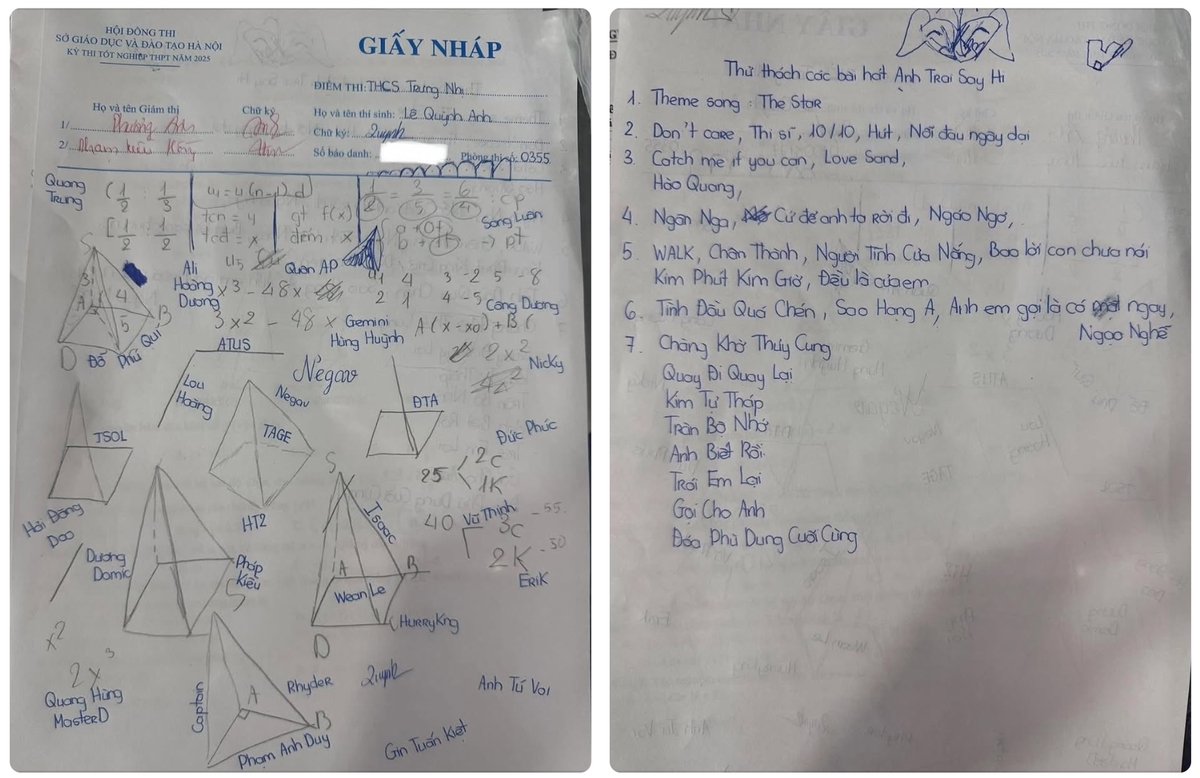 HỘI ĐỒNG THI
SỞ GIÁO DỤC VÀ ĐÀO TẠO HÀ NỘI
KỲ THI TỐT NGHIỆP THPT NĂM 2025
GIẤY NHÁP
ĐIỂM THI: THCS Trưng Nhị
Họ và tên Giám thị
Chữ ký
Họ và tên thí sinh: Lê Quỳnh Anh
1/
Chữ ký: Quỳnh
2/
Số báo danh:
Phòng thi số: 0355
Quang Trung
(1/2 : 1/3
u₁ = u(n-1)d)
1/2 = 3/5 = 6/4 : cp
[1/2 : 1/2
tcn = y
gt f(x)
tcđ = x
đếm x
Song Luân
u5
Quân AP
S
Ali Hoàng Dương
x³ - 48x
4 1 4 3 -2 5 -8
2 1 4 -5
Công Dương
3
4
A
B
5
D
3x² - 48x
Gemini Hùng Huỳnh
A(x-x0) + B(
Đỗ Phú Quí
2x²
Nicky
ATUS
Lou Hoàng
Negav
Negav
TAGE
ĐTA
JSOL
Đức Phúc
25 < 2C
1K
HT2
S
Isaac
40
Vũ Thịnh
3C - 55
2K - 50
Hải Đăng Doo
Dương Domic
Pháp Kiều
A
B
Wean Le
Erik
HURRYKNG
D
x²
2x³
S
Quang Hùng MasterD
Captain
A
Rhyder
Quỳnh
Anh Tú Voi
B
Phạm Anh Duy
Gin Tuấn Kiệt
Thử thách các bài hát Anh Trai Say Hi
1. Theme song: The Star
2. Don't care, Thi sĩ, 10/10, Hút, Nỗi đau ngày dại
3. Catch me if you can, Love Sand,
Hào Quang,
4. Ngân Nga, Cứ để anh ta rời đi, Ngáo Ngơ,
5. WALK, Chân Thành, Người Tình Của Nắng, Bao lời con chưa nói
Kim Phút Kim Giờ, Đều là của em
6. Tình Đầu Quá Chén, Sao Hạng A, Anh em gọi là có ngay,
Ngạo Nghễ
7. Chàng Khờ Thủy Cung
Quay Đi Quay Lại
Kim Tự Tháp
Trần Bộ Nhớ
Anh Biết Rồi
Trói Em Lại
Gọi Cho Anh
Đóa Phù Dung Cuối Cùng